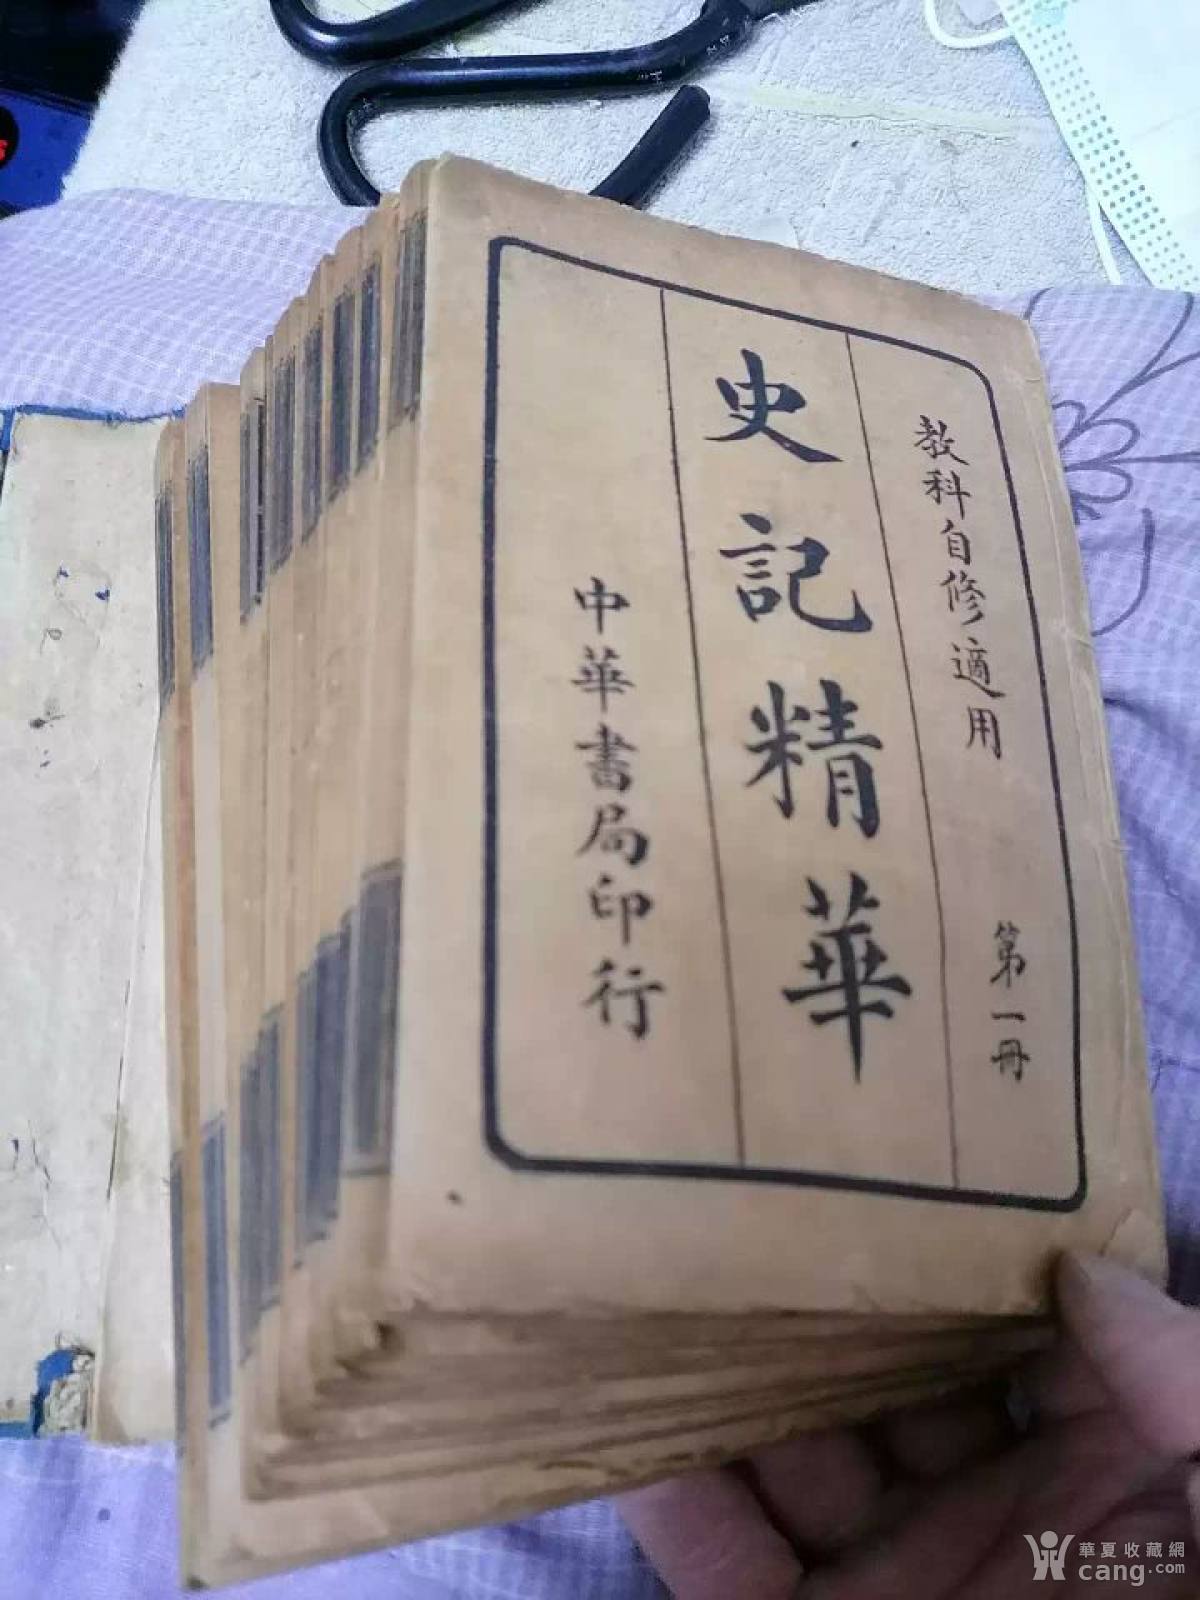 教科自修適用 第一冊
史記精華
中華書局印行
華夏收藏網
cang.com